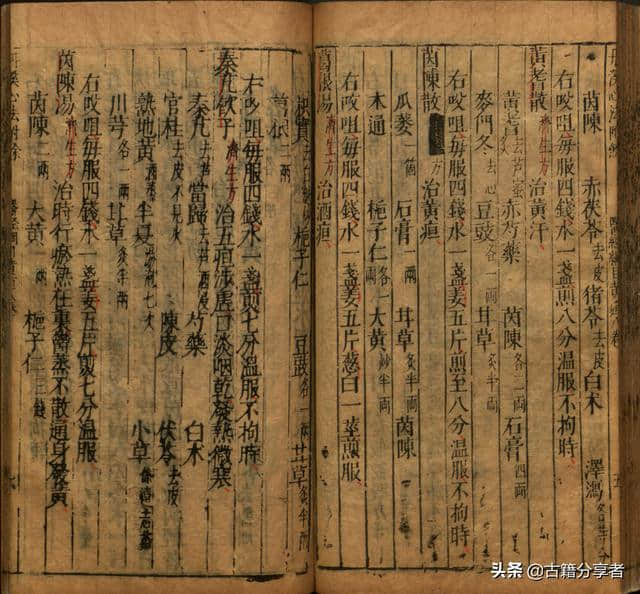 茵陳 赤茯苓去皮 猪苓去皮 白朮 澤瀉各等分
右㕮咀每服四錢水一盞煎八分温服不拘時
黄耆散濟生方治黄汗
黄耆去芦蜜 赤芍藥 茵陳各二兩 石膏四兩
麥門冬去心 豆豉各一兩 甘草炙半兩
右㕮咀每服四錢水一盞姜五片煎至八分温服不拘時
茵陳散 方治黄疸
瓜蔞一箇 石膏一兩 甘草炙半兩 茵陳
木通 梔子仁各一兩 大黄炒半兩
右㕮咀每服四錢水一盞姜五片葱白一莖煎服
葛根湯濟生方治酒疸
枳實 梔子仁 豆豉各一兩 甘草炙半兩
葛根二兩
右㕮咀每服四錢水一盞煎七分温服不拘時
秦艽飲子濟生方治五疸 口淡咽乾發熱微寒
秦艽去芦 當歸去芦酒浸 芍藥 白朮
官桂去皮不見火 陳皮 茯苓去皮
熟地黄酒蒸 半夏湯泡七次 小草
川芎各一兩 甘草炙半兩
右㕮咀每服四錢水一盞姜五片煎七分温服
茵陳湯濟生方治時行瘀熱在裏鬱蒸不散通身發黄
茵陳二兩 大黄一兩 梔子仁三錢
头条 @古籍分享者